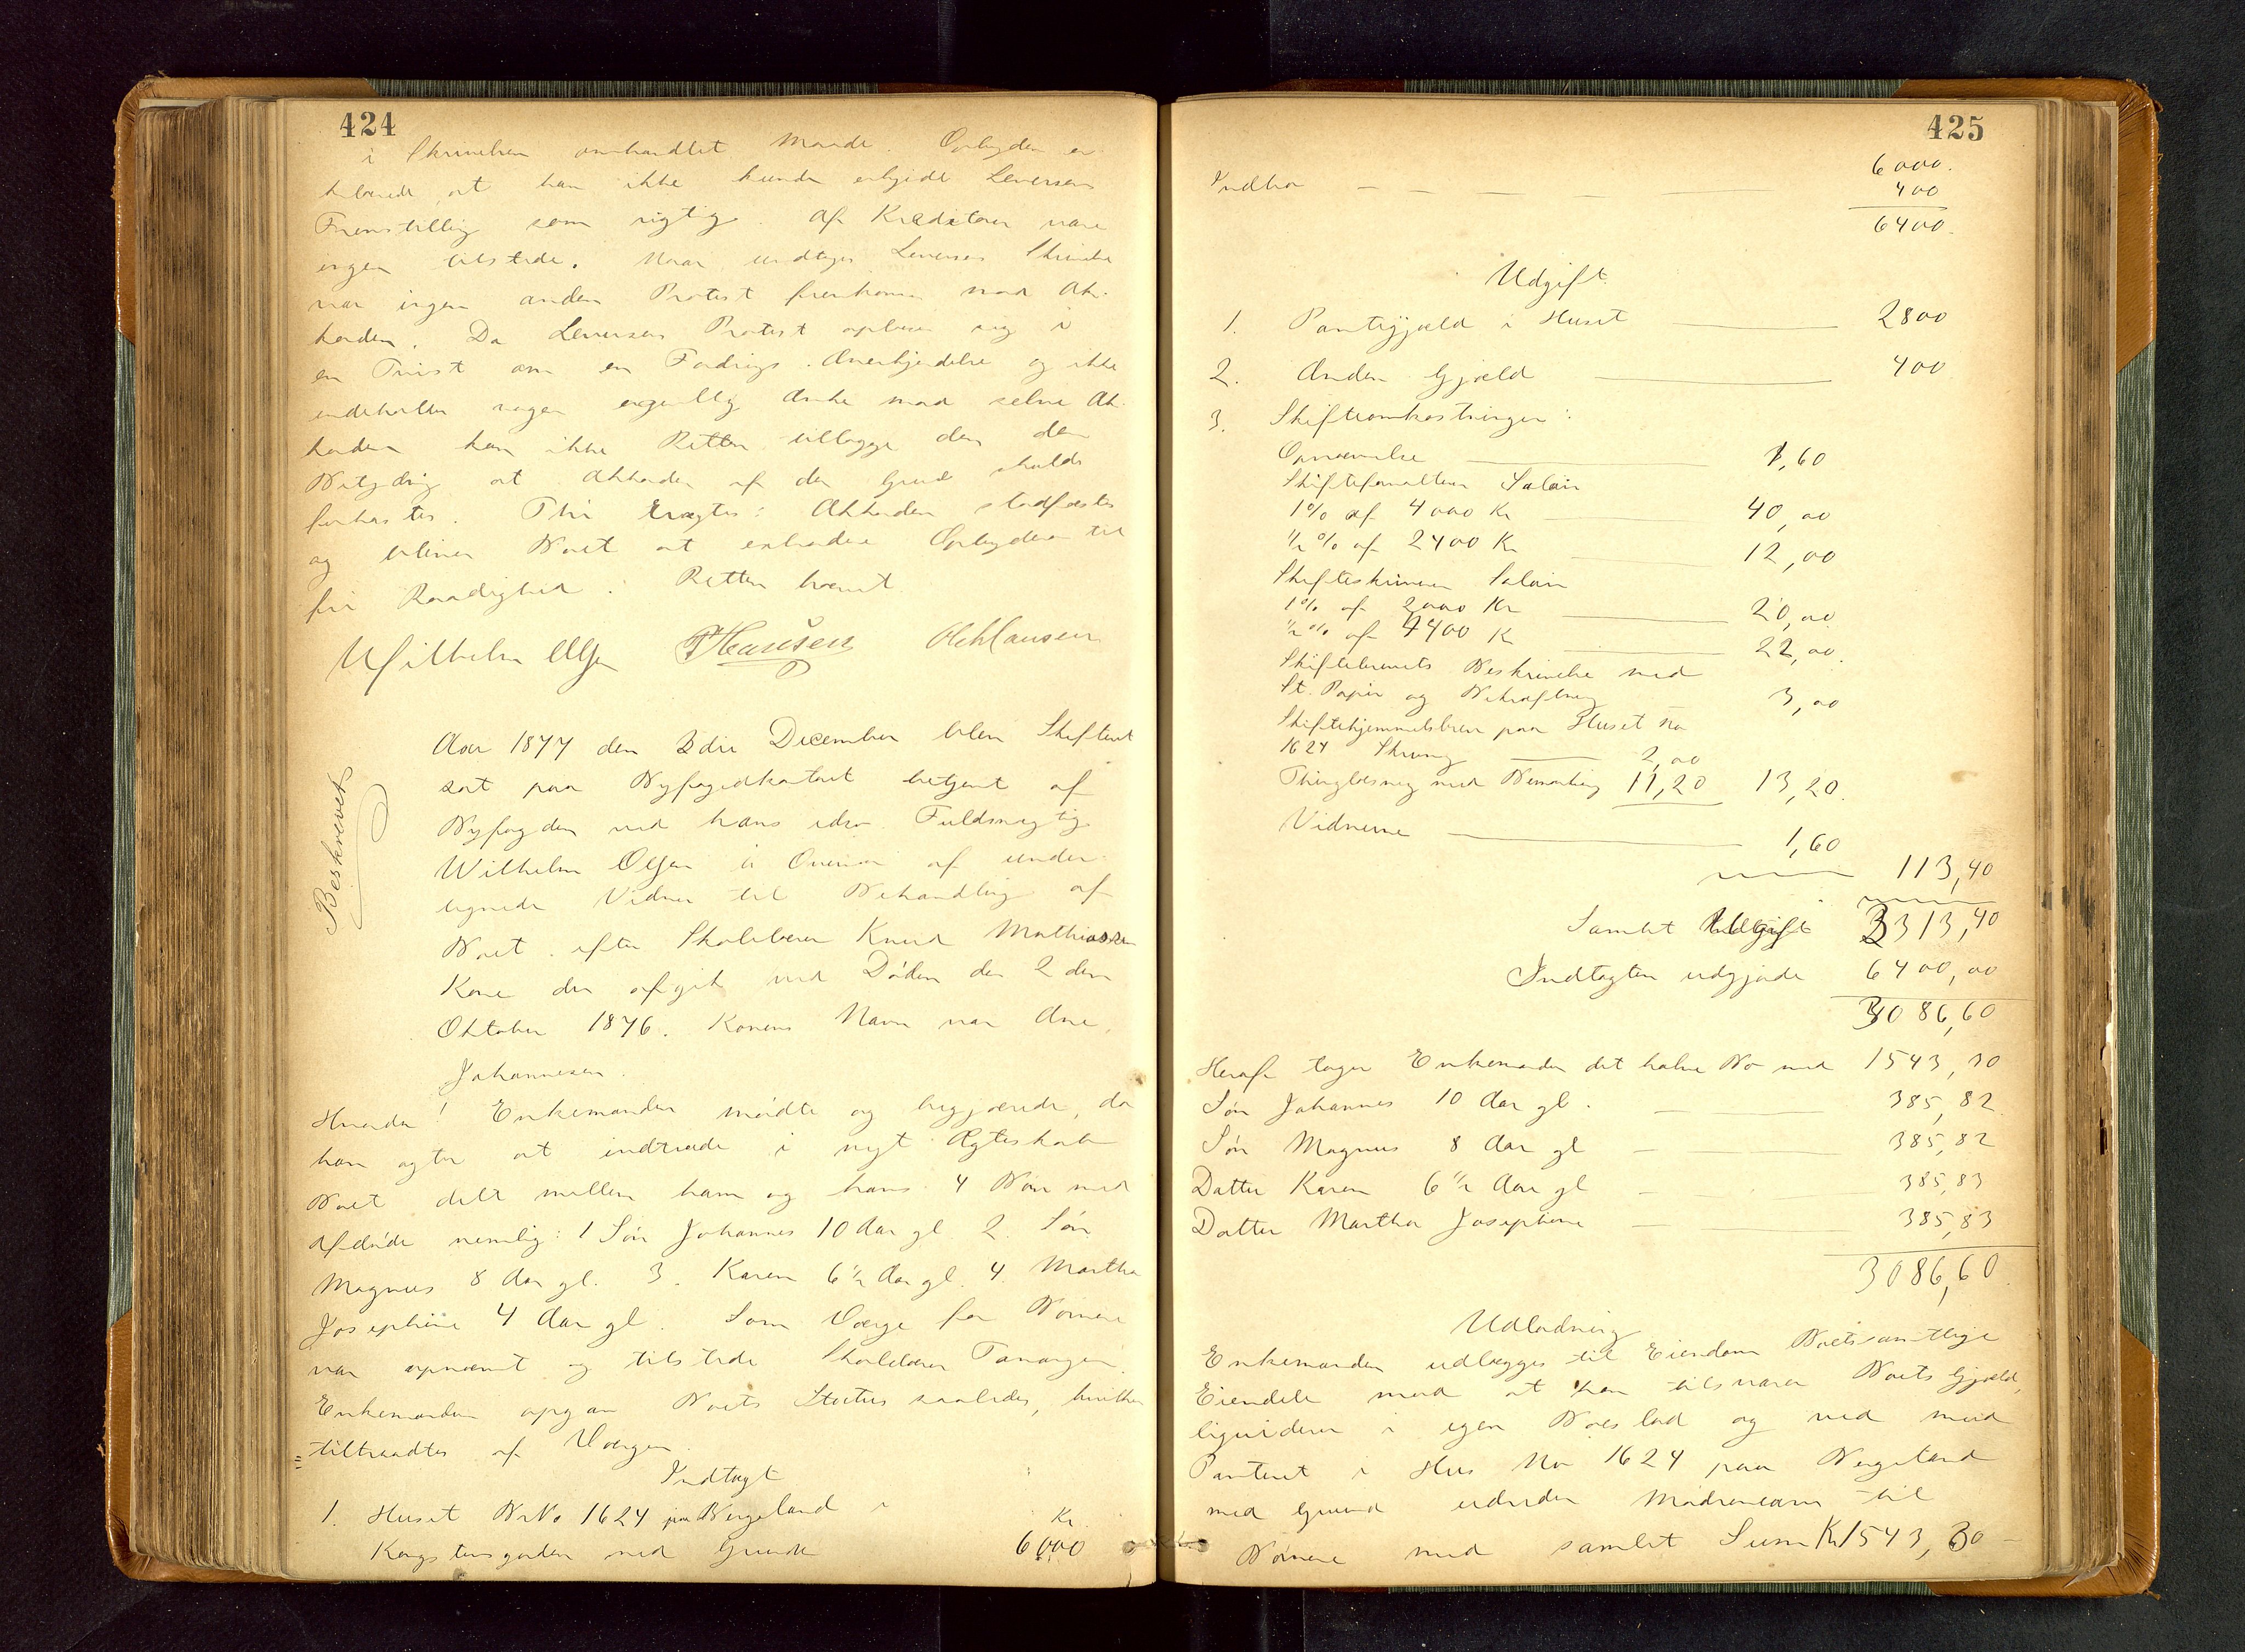 424
i Skrivelsen omhandlet Maade. Opbyderen er-
klærede, at han ikke kunde erkjende Leversens
Fremstilling som rigtig. Af Kreditorer vare
ingen tilstede. Naar undtages Leversens Skrivelse
var ingen anden Protest fremkommen mod Ak-
korden. Da Leversens Protest opløser sig i
en Tvist om en Fordrings Anerkjendelse og ikke
indeholder nogen egentlig Anke mod selve Ak-
korden kan ikke Retten tillægge den den
Betydning at Akkorden af den Grund skulde
forkastes. Thi eragtes: Akkorden stadfæstes
og bliver Boet at extradere Opbyderen til
fri Raadighed. Retten hævet
Wilhelm Olsen THansen OleHansen
Beskrevet
Aar 1877 den 3die December blev Skifteret
sat paa Byfogedkontoret betjent af
Byfogden ved hans edsv. Fuldmægtig
Wilhelm Olsen i Overvær af under-
tegnede Vidner til Behandling af
Boet efter Skolelærer Knud Mathiassen
Kone der afgik ved Døden den 2den
Oktober 1876. Konens Navn var Ane
Johannesen.
Hvorda! Enkemanden mødte og begjærede, da
han agter at indtræde i nyt Ægteskab
Boet delt mellem ham og hans 4 Børn med
Afdøde nemlig: 1 Søn Johannes 10 Aar gl 2. Søn
Magnus 8 Aar gl. 3. Karen 6½ Aar gl. 4. Martha
Josephine 4 Aar gl. Som Værge for Børnene
var opnævnt og tilstede Skolelærer Tananger.
Enkemanden opgav Boets Status saaledes, hvilken
tiltraadtes af Værgen.
Indtægt
1. Huset BNo 1624 paa Bergeland i
Kr.
Kongstensgaden med Grund 6000
425
Indbo — — — — 6000.
400
6400.
Udgift
1. Pantegjæld i Huset — 2800
2. Anden Gjæld — 400
3. Skifteomkostninger:
Opnævnelse — 1,60
Skifteforvalteren Salair
1% af 4000 Kr — 40,00
½% af 2400 Kr — 12,00
Skifteskriveren Salair
1% af 2000 Kr — 20,00
½% af 4400 Kr — 22,00.
Skiftebrevets Beskrivelse med
St. Papir og Bekræftning — 3,00
Skiftehjemmelsbrev paa Huset No
1624 Skrivning — 2,00
Thinglæsning med Bemærkning 11,20 13,20.
Vidnerne — 1,60
113,40
Samlet Udgift 3313,40
Indtægten udgjorde 6400,00
3086,60
Heraf tager Enkemanden det halve Bo med 1543,30
Søn Johannes 10 Aar gl. — 385,82
Søn Magnus 8 Aar gl — 385,82
Datter Karen 6½ Aar gl — 385,83
Datter Martha Josephine — 385,83
3086,60.
Udlodning
Enkemanden udlægges til Eiendom Boets samtlige
Eiendele mod at han tilsvarer Boets Gjæld,
liquiderer i egen Boeslod og ved mod
Panteret i Hus No 1624 paa Bergeland
med Grund udreder Mødrenearv til
Børnene med samlet Sum Kr 1543,30 —